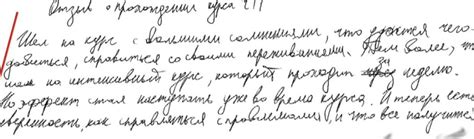 Отзыв о прохождении курса
Шел на курс с большими сомнениями, что удастся чего-
добиться, справиться со своими переживаниями. Тем более, т
шел на интенсивный курс, который проходит за неделю.
Но эффект стал наступать уже во время курса. И теперь есть
веренность, как справляться с проблемами, и что все получит